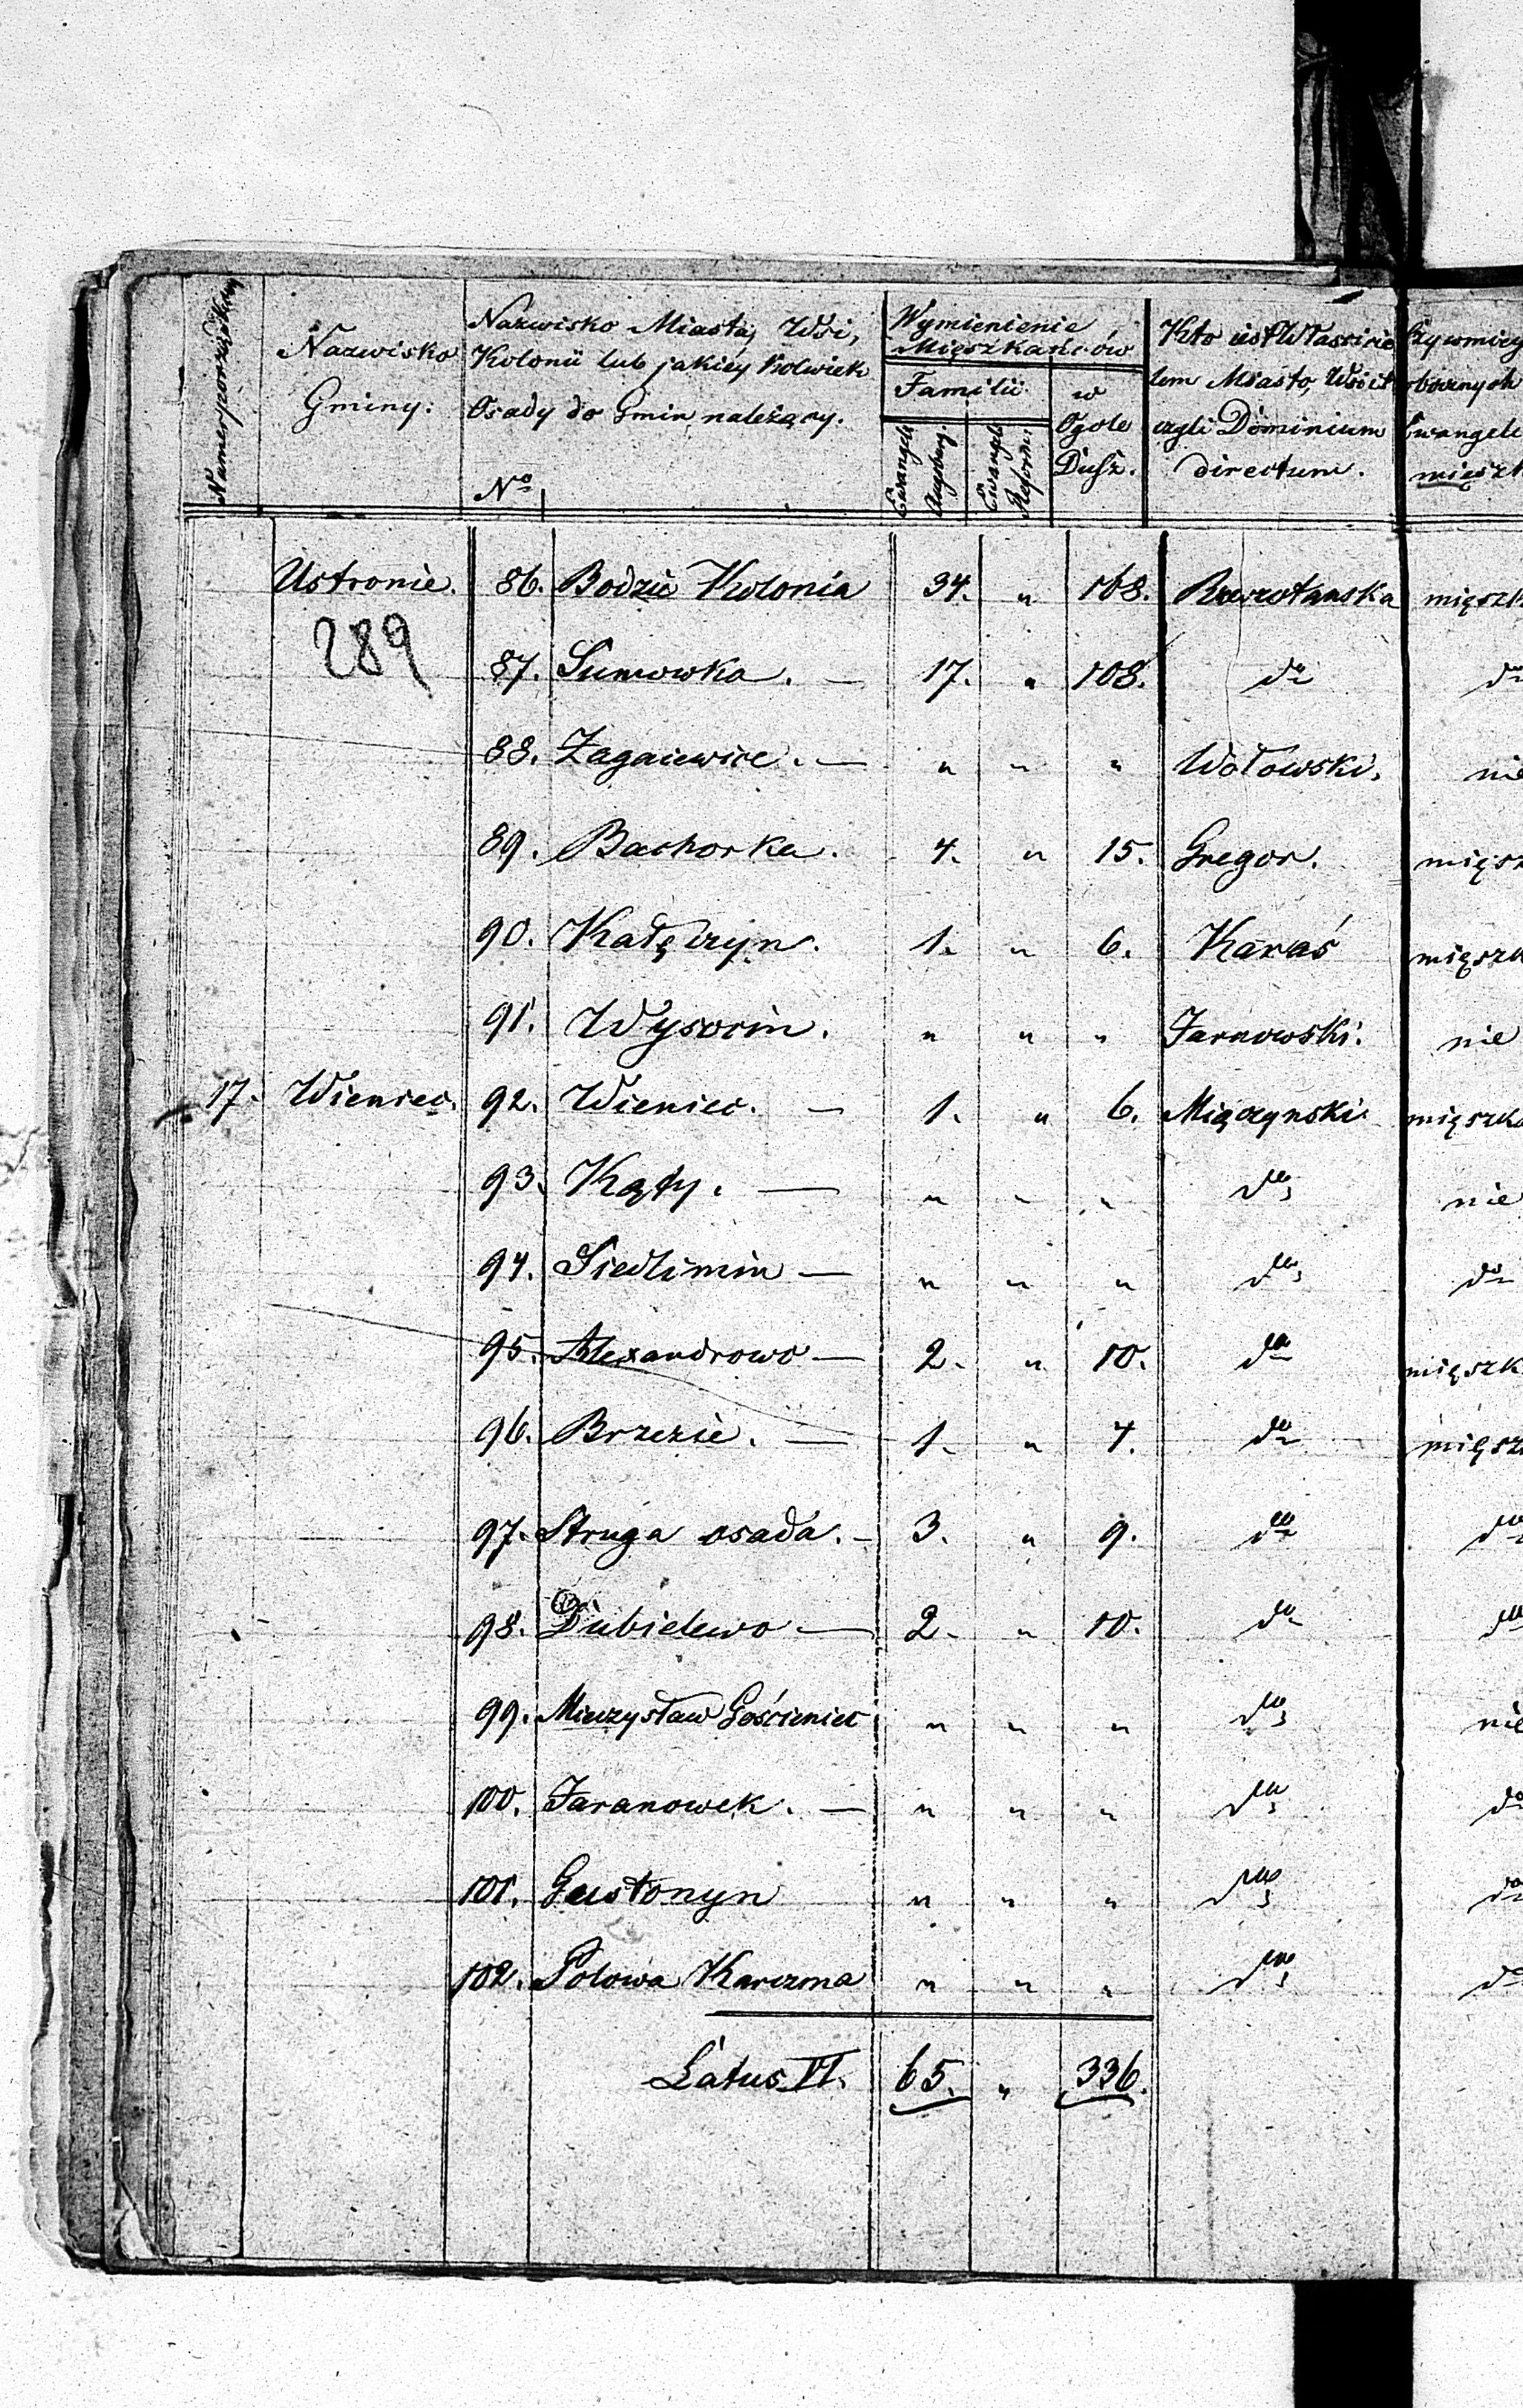 Numer porządkowy
Nazwisko
Gminy:
Nazwisko Miasta, Wsi,
Kolonii lub jakiéy kolwiek
Osady do Gmin należący.
No
Wymienienie
Mięszkańców
Familii
Ewangel: Augsburg.
Ewangel: Reform:
w
Ogole
Dusz.
Kto iest Właścicie
lem Miasto, Wsi it
czyli Dominium
directum.
Ewangeli
mięszk
Ustronie. 86. Bodzie Kolonia 34. " 168. mięszk
289
87. Sumowka. — 17. " 108. do do
88. Zagaiewice. — " " " Wołowski. nie
89. Bachorka. 4. " 15. Gregor. mięsz
90. Kałęczyn. 1. " 6. Karaś mięszk
91. Wysocin. " " " Jarnowski. nie
17. Wieniec. 92. Wieniec. — 1. " 6. Mięczynski mięszka
93. Kąty. — " " " do nie
94. Siedlimin — " " " do do
95. Alexandrowo — 2. " 10. do mięszk
96. Brzezie. — 1. " 4. do mięsz
97. Struga osada. — 3. " 9. do do
98. Dubielewo — 2. " 10. do do
99. Mieczysław Gościeniec " " " do nie
100. Jaranowek. — " " " do do
101. Gustonyn " " " do do
102. Polowa Karczma " " " do do
Latus VI. 65. " 336.